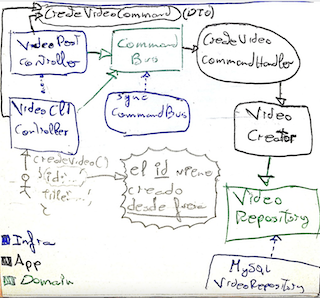 CreateVideoCommand (DTO)
Video Post
Controller
Command
Bus
Create Video
CommandHandler
Video CLI
Controller
sync
CommandBus
Video
Creator
createVideo()
{id:...,
title:...}
el id viene
creado
desde fuera
Video
Repository
MySql
VideoRepository
Infra
App
Domain